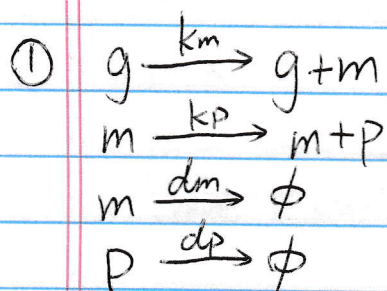 ① g km→ g+m
m kp→ m+p
m dm→ ϕ
p dp→ ϕ